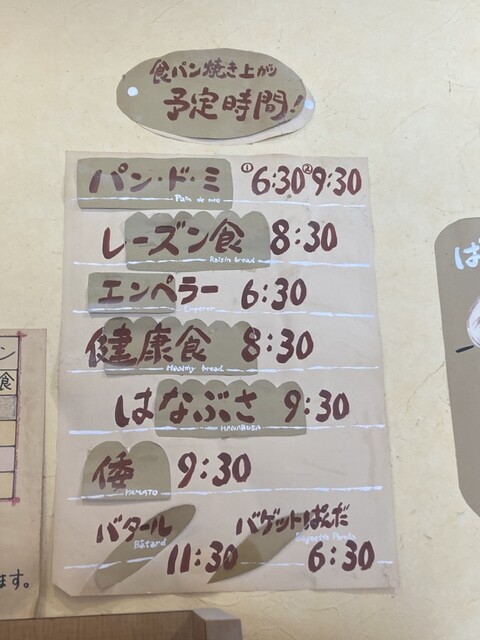 食パン焼き上がり
予定時間!
パン・ド・ミ ①6:30②9:30
Pain de mie
レーズン食 8:30
Raisin bread
エンペラー 6:30
Emperor
健康食 8:30
Healthy bread
はなぶさ 9:30
HANABUSA
倭 9:30
YAMATO
バタール バゲットぱんだ
Bâtard
11:30 6:30
ン
食
ます。
ば